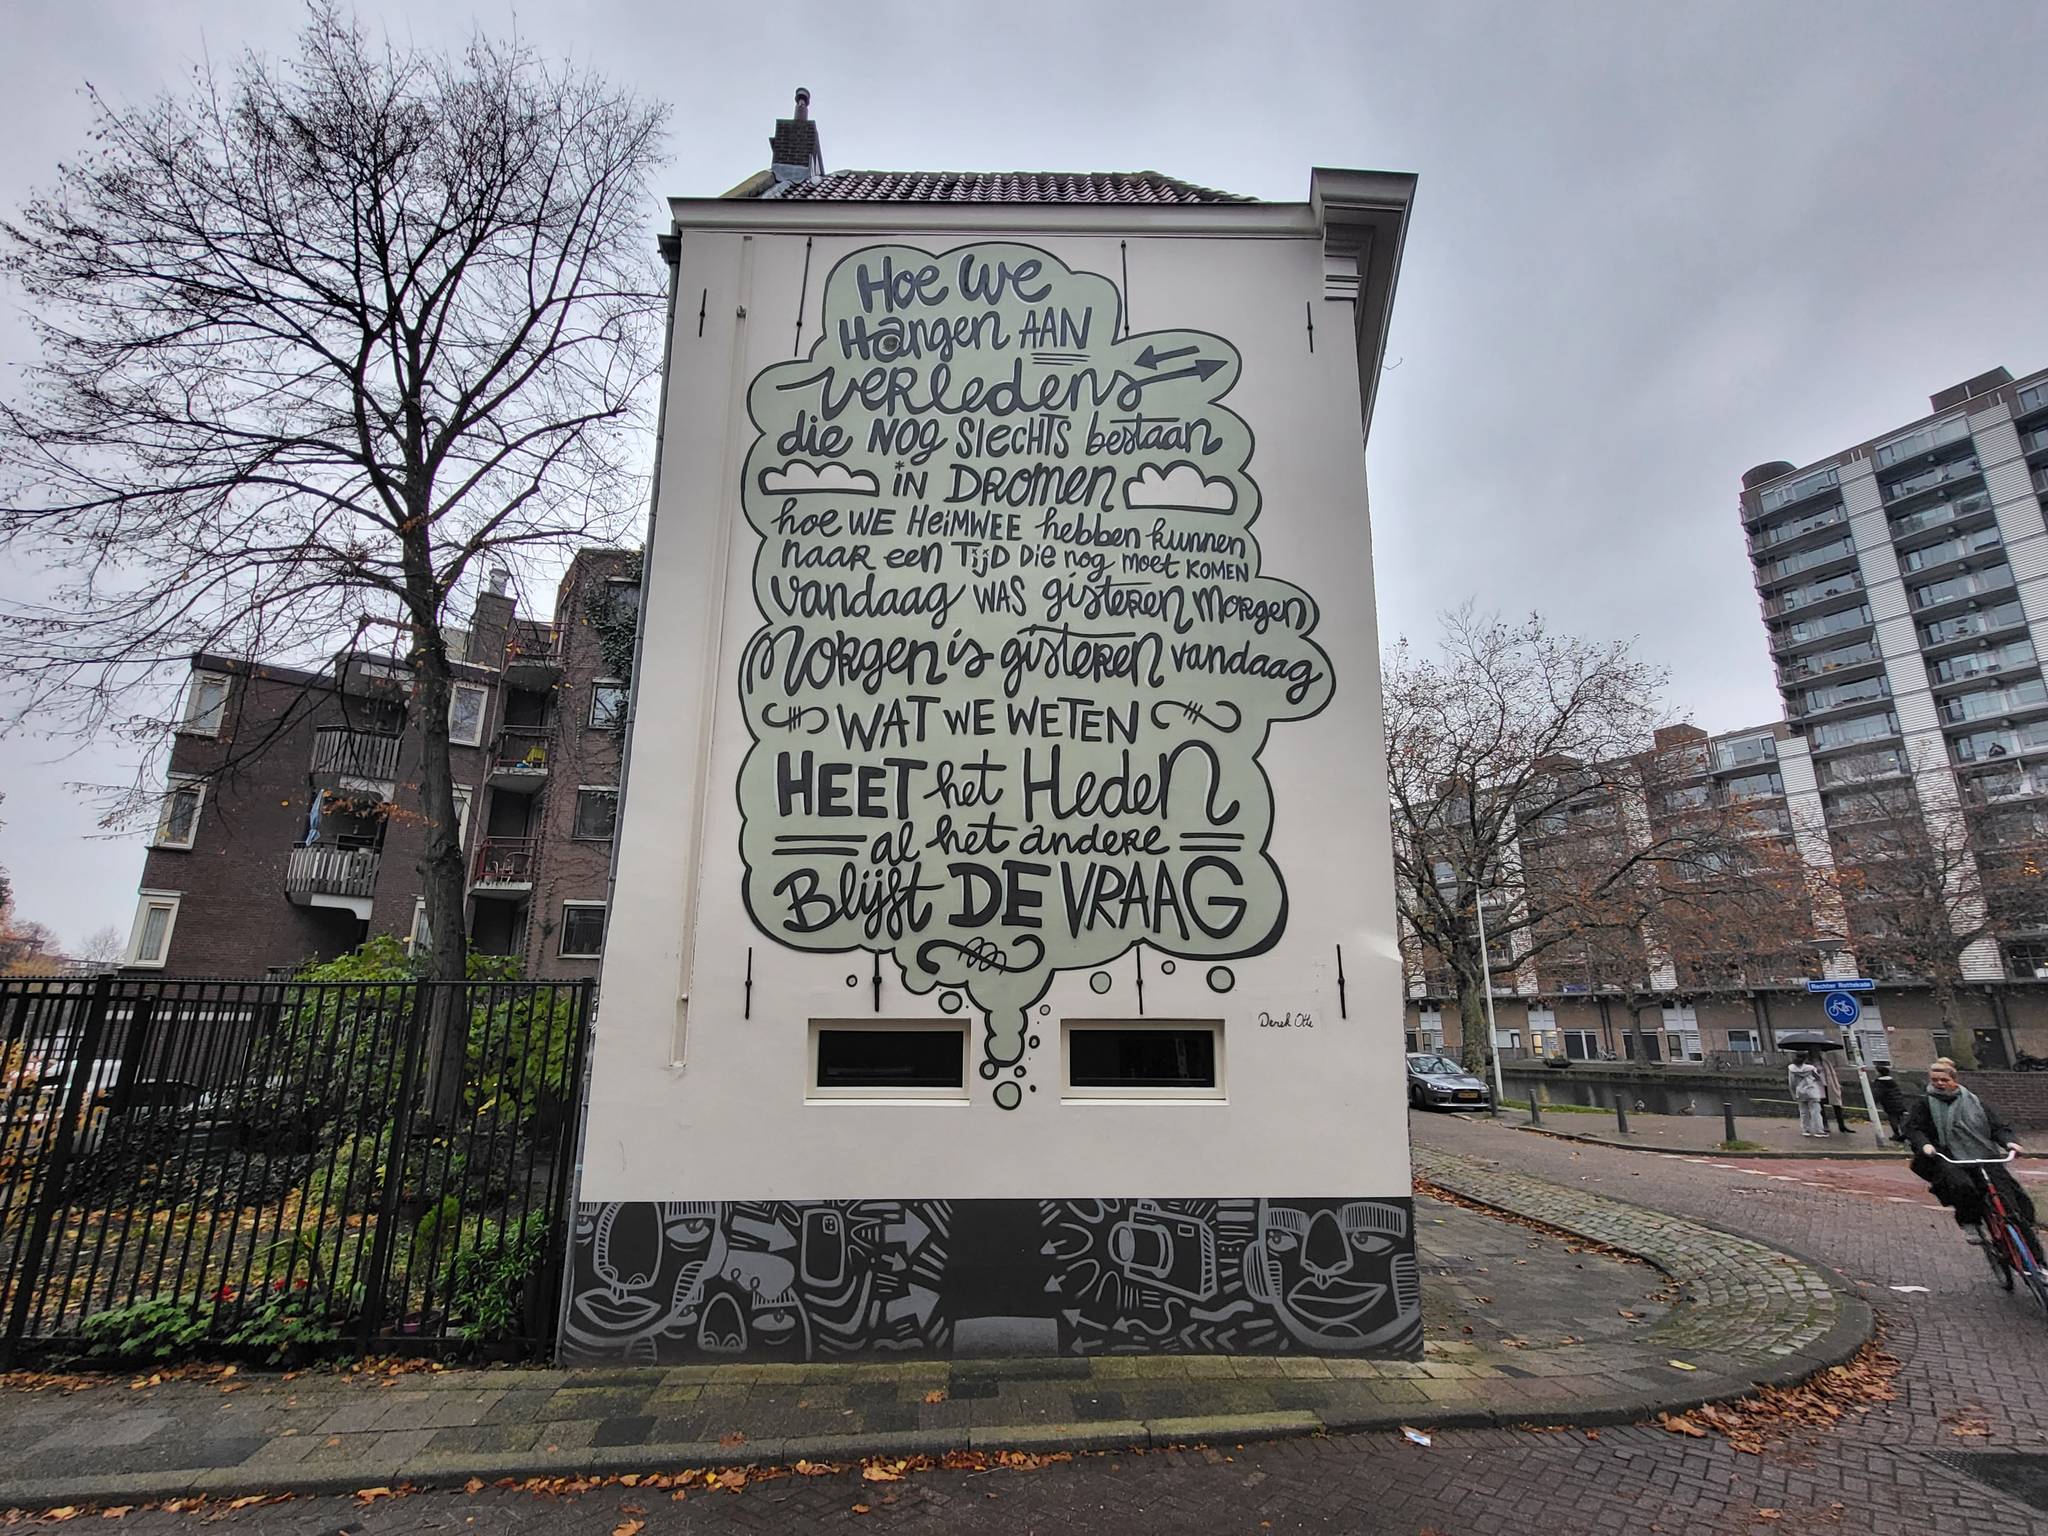 Hoe we
Hangen AAN
verledens
die NOG slechts bestaan
in Dromen
hoe WE HeiMWEE hebben kunnen
naar een Tijd Die nog moet KOMEN
Vandaag WAS gisteren Morgen
Morgen is gisteren vandaag
WAT WE WETEN
HEET het Heden
al het andere
Blijft DE VRAAG
Derek Otte
Rechter Rottekade